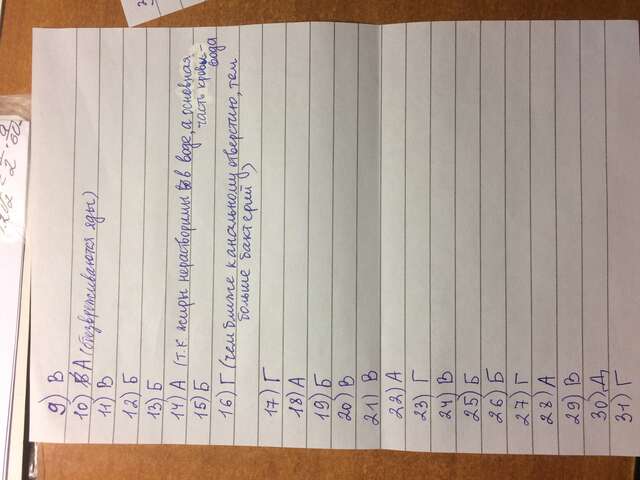 9) В
10) А (обезвреживаются яды)
11) В
12) Б
13) Б
14) А (т.к жиры нерастворимы в воде, а основная
часть крови-
вода
15) Б
16) Г (чем ближе к анальному отверстию, тем
больше бактерий)
17) Г
18) А
19) Б
20) В
21) В
22) А
23) Г
24) В
25) Б
26) Б
27) Г
28) А
29) В
30) Д
31) Г